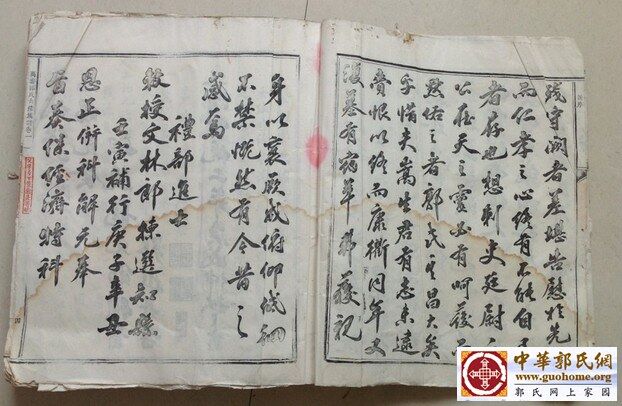 守湖者甚堪告慰於先
而仁孝之心終有不能自
者存也想刺史廷尉
公在天之靈必有呵護
默佑之者郭氏其昌大矣
乎惜夫嵩生君有志未遂
賫恨以終而廉衢同年又
復墓有宿草弗獲
身以襄厥成俯仰低徊
不禁慨然有今昔之
感焉
禮部進士
敕授文林郎揀選知縣
壬寅補行庚子辛丑
恩正併科解元奉
旨荐保經濟特科
四
中華郭氏網
www.guohome.org
郭氏网上家园